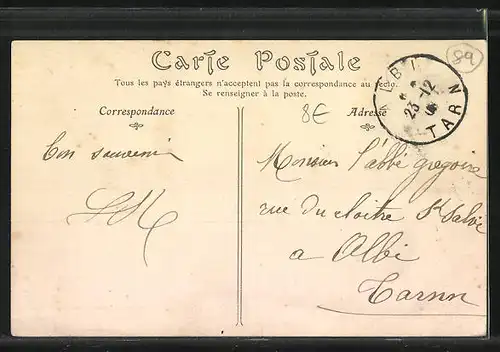 89
Carte Postale
Tous les pays étrangers n'acceptent pas la correspondance au recto.
Se renseigner à la poste.
Correspondance
8€
Adresse
ALBI
23-12
TARN
bon souvenir
Monsieur l'abbé gregoire
rue du cloitre St Salvi
a Albi
Tarnn